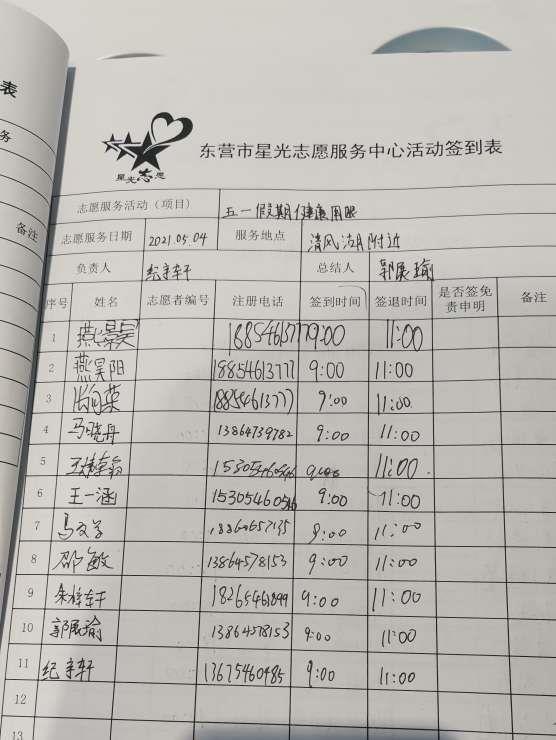 表
务
备注
星光志愿
东营市星光志愿服务中心活动签到表
志愿服务活动（项目） 五一假期健康用眼
志愿服务日期 2021.05.04 服务地点 清风湖附近
负责人 纪辛轩 总结人 郭展瑜
序号 姓名 志愿者编号 注册电话 签到时间 签退时间 是否签免责申明 备注
1 燕景昊 18854613777 9:00 11:00
2 燕昊阳 18854613777 9:00 11:00
3 18854613777 9:00 11:00
4 马晓丹 13864739782 9:00 11:00
5 15305460546 9:00 11:00
6 王一涵 15305460546 9:00 11:00
7 9:00 11:00
8 邵敏 13864578153 9:00 11:00
9 朱梓轩 9:00 11:00
10 郭展瑜 13864578153 9:00 11:00
11 纪辛轩 13675460485 9:00 11:00
12
13